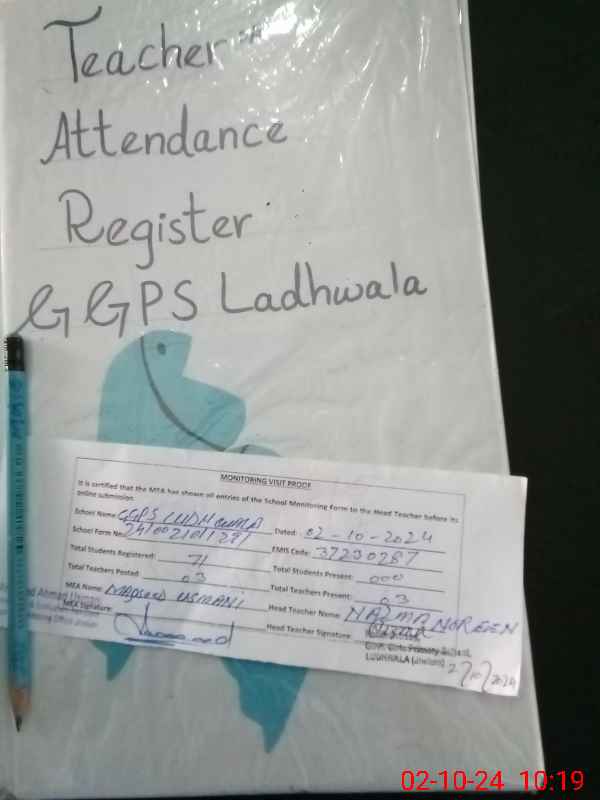 Teacher
Attendance
Register
GGPS Ladhwala
MONITORING VISIT PROOF
It is certified that the MEA has shown all entries of the School Monitoring Form to the Head Teacher before its
online submission.
School Name: GGPS LUDHWALA Dated: 02-10-2024
School Form No: EMIS Code: 37230287
Total Students Registered: 71 Total Students Present: 000
Total Teachers Posted: 03 Total Teachers Present: 03
MEA Name: MAQSOOD USMANI Head Teacher Name: NAZMA NOREEN
MEA Signature: Head Teacher Signature:
Govt. Girls Primary School,
LUDHWALA (Jhelum)
2/10/2024
Ahmad Usmani
02-10-24 10:19